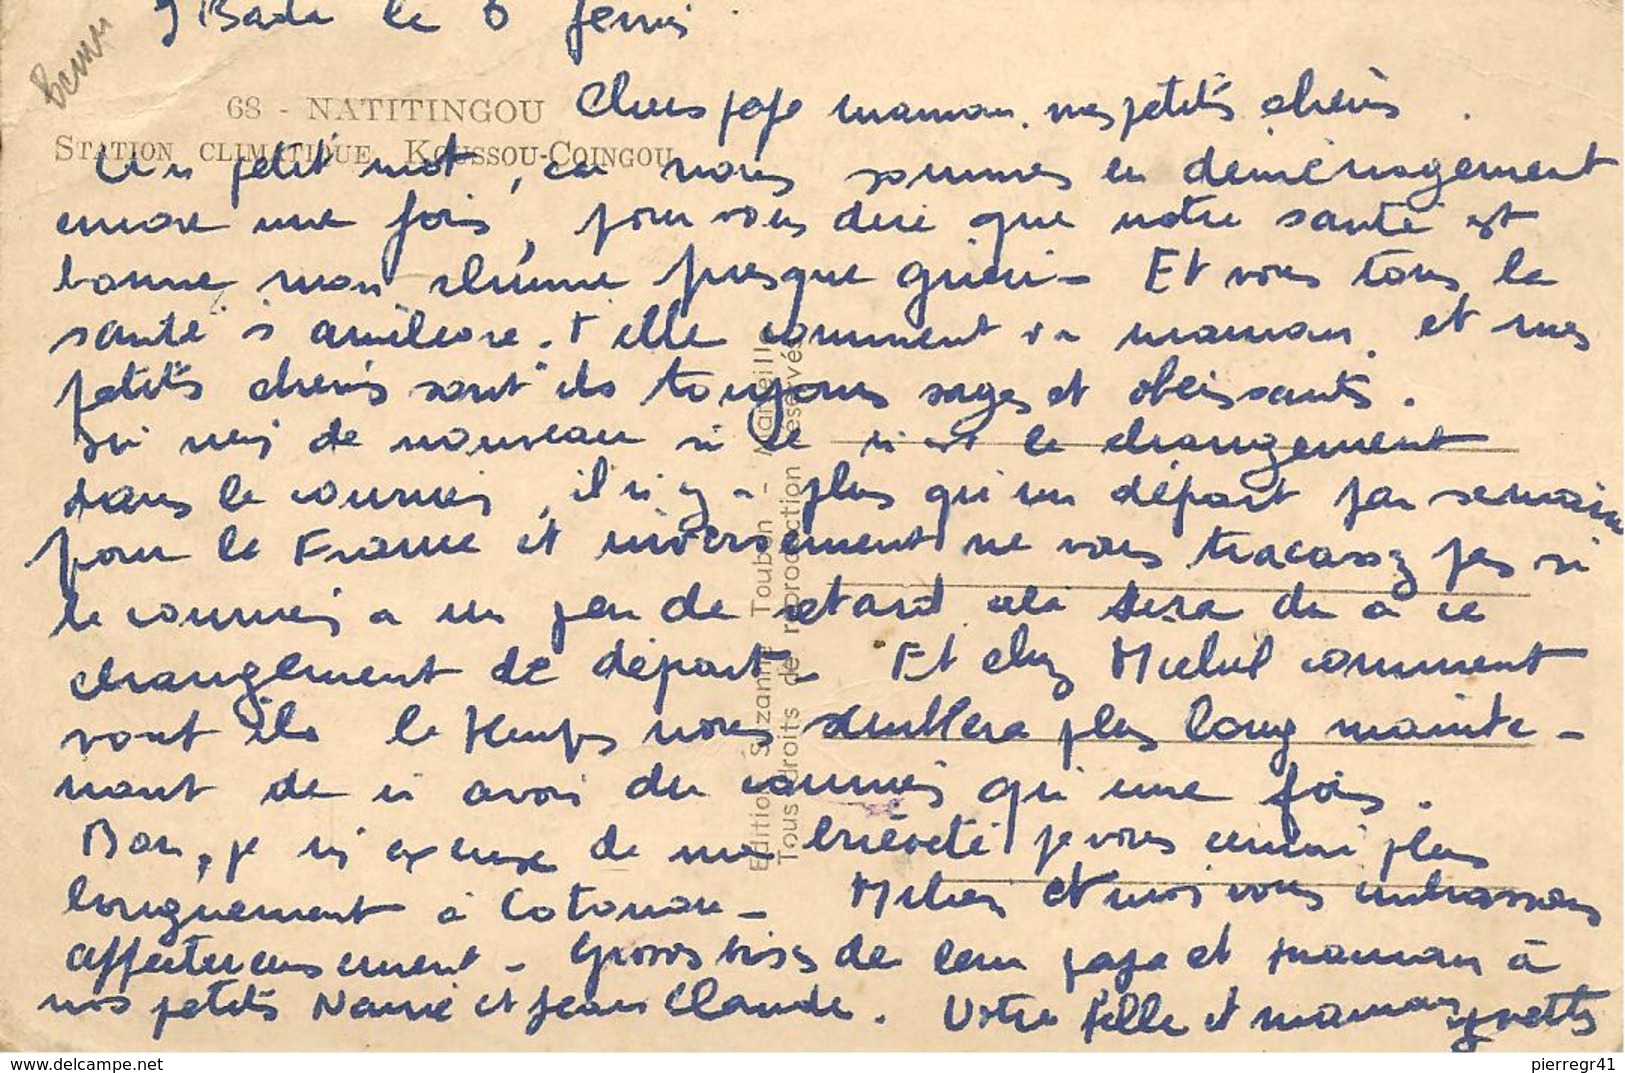 le 6
68 - NATITINGOU
STATION CLIMATIQUE KOUSSOU-COINGOU
Chers papa maman, mes petits chéris.
Un petit mot, car nous sommes en déménagement
encore une fois, pour vous dire que notre santé est
bonne mon rhume presque guéri - Et vous tous la
santé s'améliore-t'elle comment va maman, et mes
petits chéris sont ils toujours sages et obéissants.
Ici rien de nouveau si ce n'est le changement
dans le courrier, il n'y a plus qu'un départ par semaine
pour la France et inversement ne vous tracassez pas si
le courrier a un peu de retard cela sera du à ce
changement de départ - Et chez Michel comment
vont ils le temps nous semblera plus long mainte-
nant de n'avoir du courrier qu'une fois.
Bon, je m'excuse de ma brièveté je vous écrirai plus
longuement à Cotonou - et moi vous embrassons
affectueusement - Grosses bises de leur papa et maman à
nos petits et Jean Claude. Votre fille et maman Yvette
Editions Suzanne Toubon - Marseille
Tous droits de reproduction réservés
pierregr41